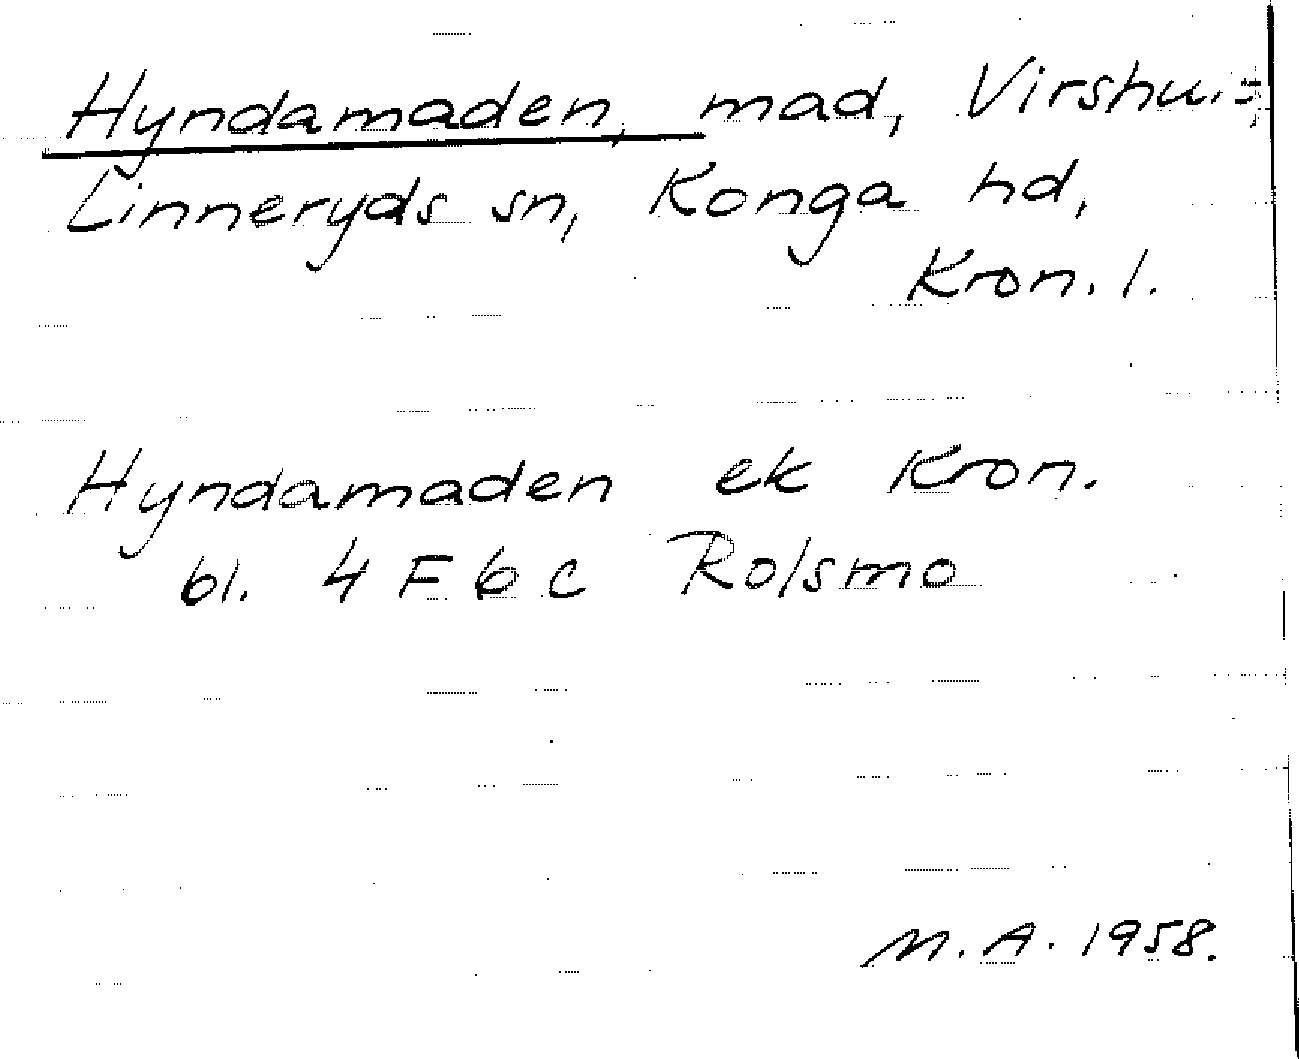 Hyndamaden, mad, Virshu.
Linneryds sn, Konga hd,
Kron. l.
Hyndamaden ek Kron.
bl. 4 F 6 c Rolsmo
M. A. 1958.